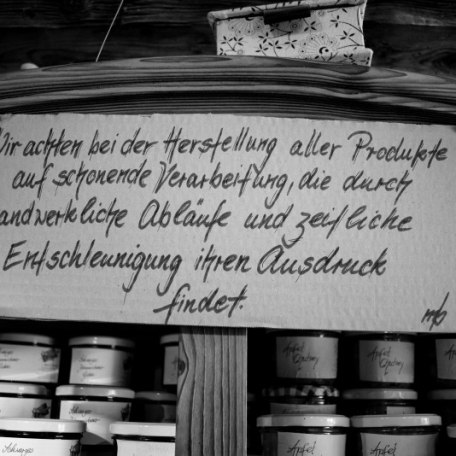 Wir achten bei der Herstellung aller Produkte
auf schonende Verarbeitung, die durch
handwerkliche Abläufe und zeitliche
Entschleunigung ihren Ausdruck
findet.
Apfel
Apfel
Apfel
Apfel
Schwarze